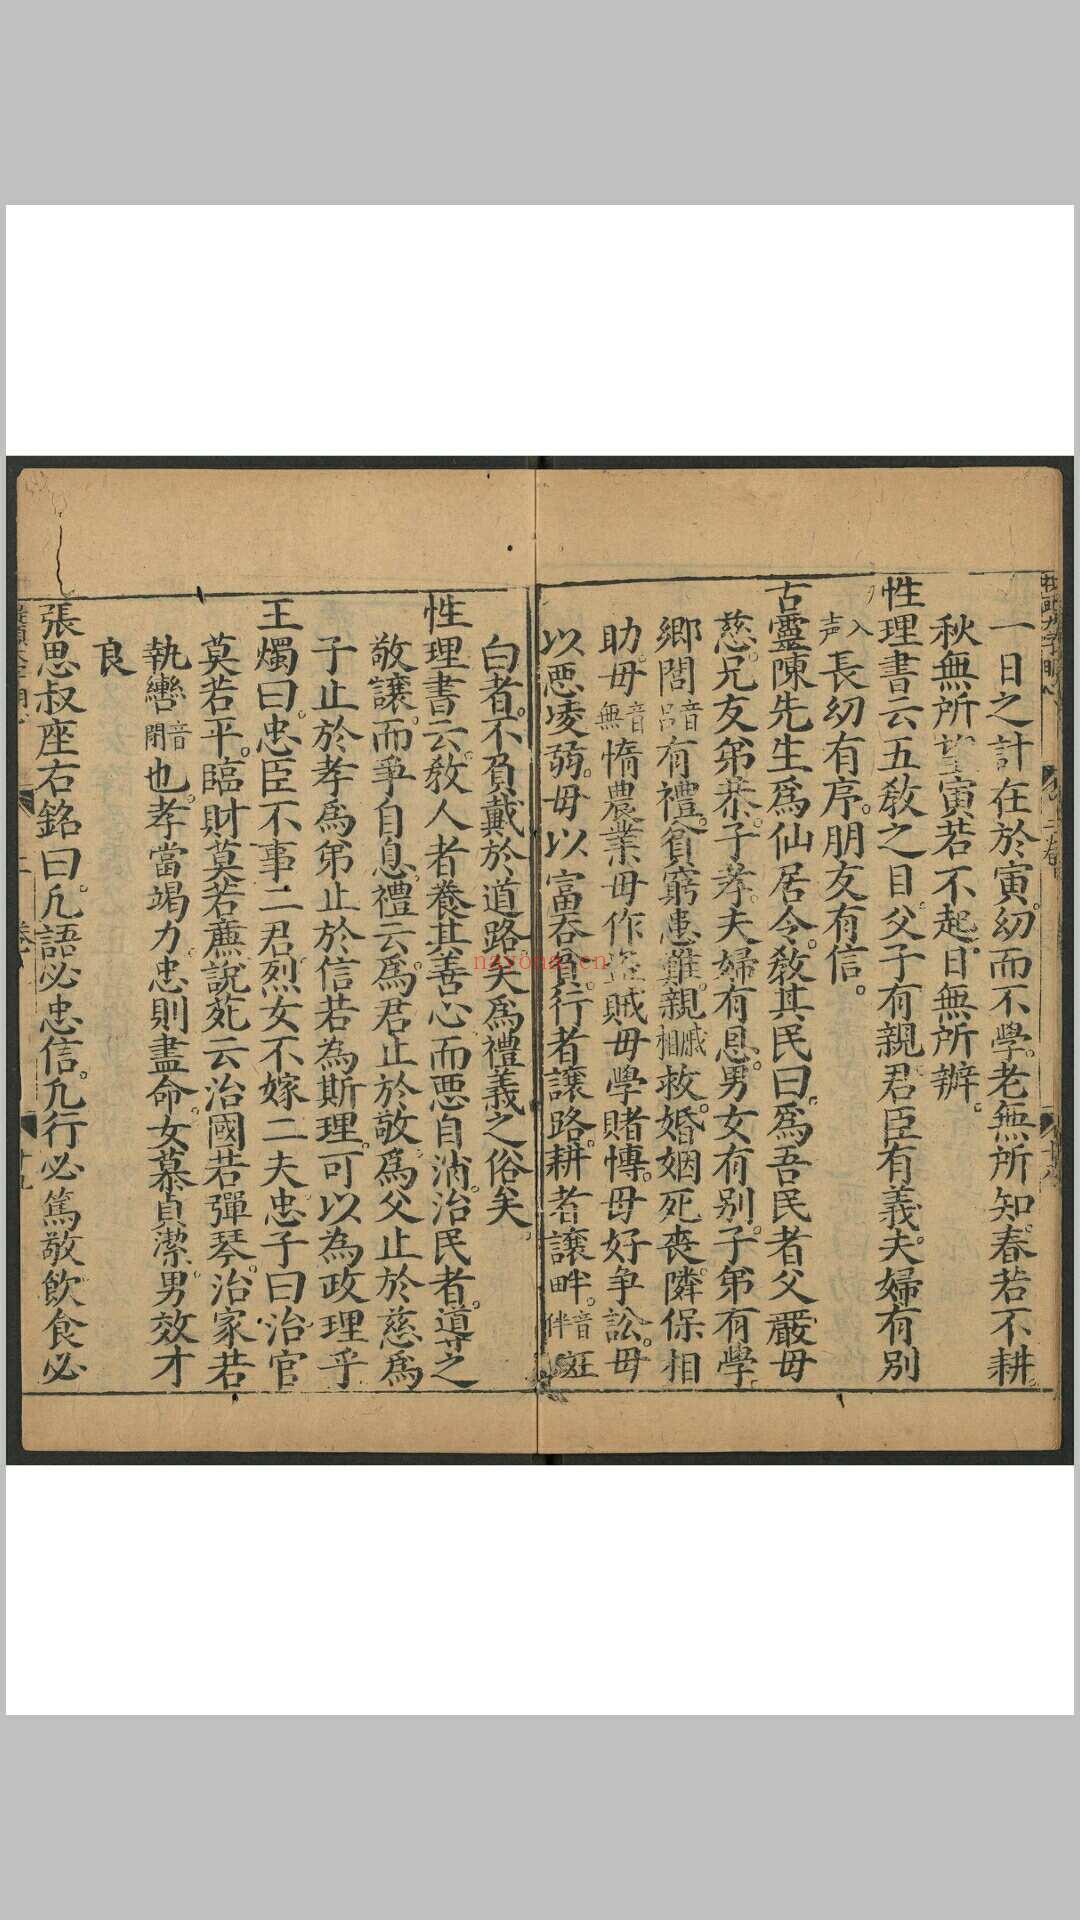 一日之計在於寅。幼而不學。老無所知。春若不耕。
秋無所望。寅若不起。日無所辦。
性理書云五敎之目。父子有親。君臣有義。夫婦有别
入声長幼有序。朋友有信。
古靈陳先生爲仙居令。敎其民曰。爲吾民者父嚴母
慈。兄友弟恭。子孝。夫婦有恩。男女有别。子弟有學。
鄉閭音吕有禮。貧窮患難。親戚相救。婚姻死喪。隣保相
助。毋音無惰農業。毋作盜賊。毋學賭愽。毋好争訟。毋
以悪凌弱。毋以富吞貧。行者讓路。耕者讓畔。音伴斑
白者。不負戴於道路矣。爲禮義之俗矣。
性理書云。敎人者養其善心而悪自消。治民者。道之
敬讓。而爭自息。禮云。爲君止於敬。爲父止於慈。爲
子止於孝。爲弟止於信。若為斯理。可以為政理乎
王燭曰。忠臣不事二君。烈女不嫁二夫。忠子曰。治官
莫若平。臨財莫若亷。說苑云。治國若彈琴。治家若
執轡音閉也。孝當竭力。忠則盡命。女慕貞潔。男效才
良
張思叔座右銘曰。凢語必忠信。凢行必篤敬。飲食必
nayona.cn